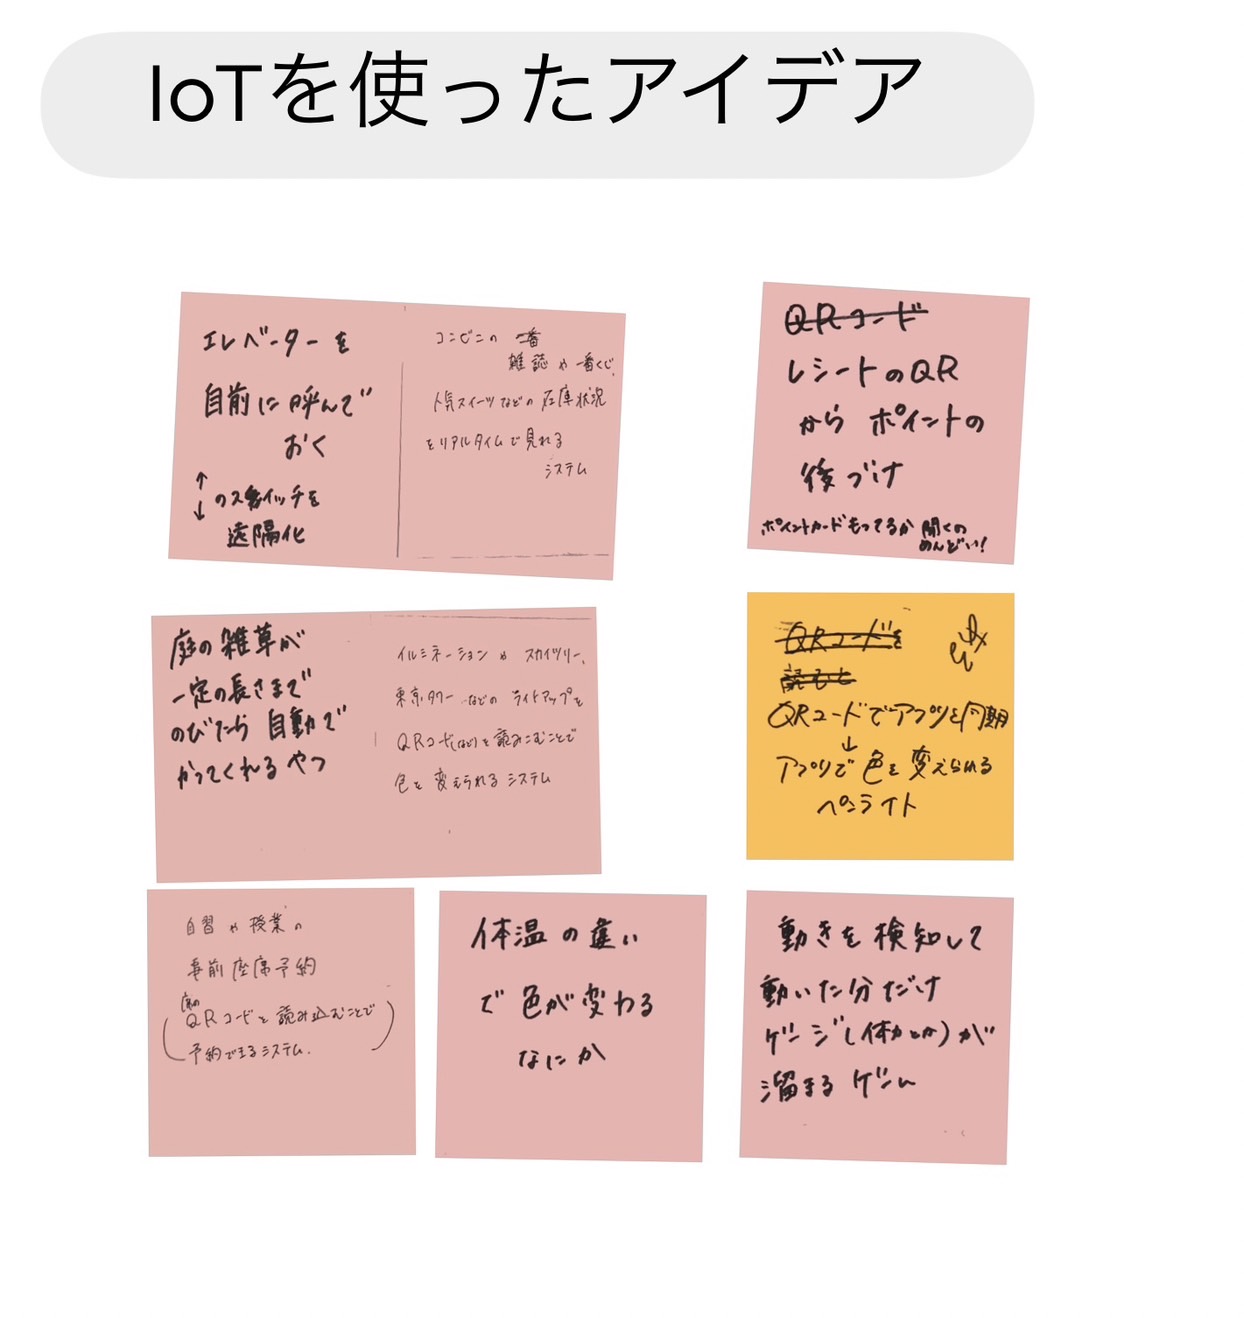 IoTを使ったアイデア
エレベーターを
自前に呼んで
おく
↑
↓
のスイッチを
遠隔化
コンビニの 一番
雑誌や一番くじ、
人気スイーツなどの在庫状況
をリアルタイムで見れる
システム
QRコード
レシートのQR
から ポイントの
後づけ
ポイントカードもってるか 聞くの
めんどい!
庭の雑草が
一定の長さまで
のびたら 自動で
かってくれるやつ
イルミネーションや スカイツリー、
東京タワーなどの ライトアップを
QRコード(など)を読みこむことで
色を変えられるシステム
QRコードを
読むと
QRコードでアプリと同期
↓
アプリで色を変えられる
ペンライト
自習や授業の
事前座席予約
席の
(QRコードを読み込むことで
予約できるシステム.)
体温の違い
で色が変わる
なにか
動きを検知して
動いた分だけ
ゲージ(体力とか)が
溜まるゲーム